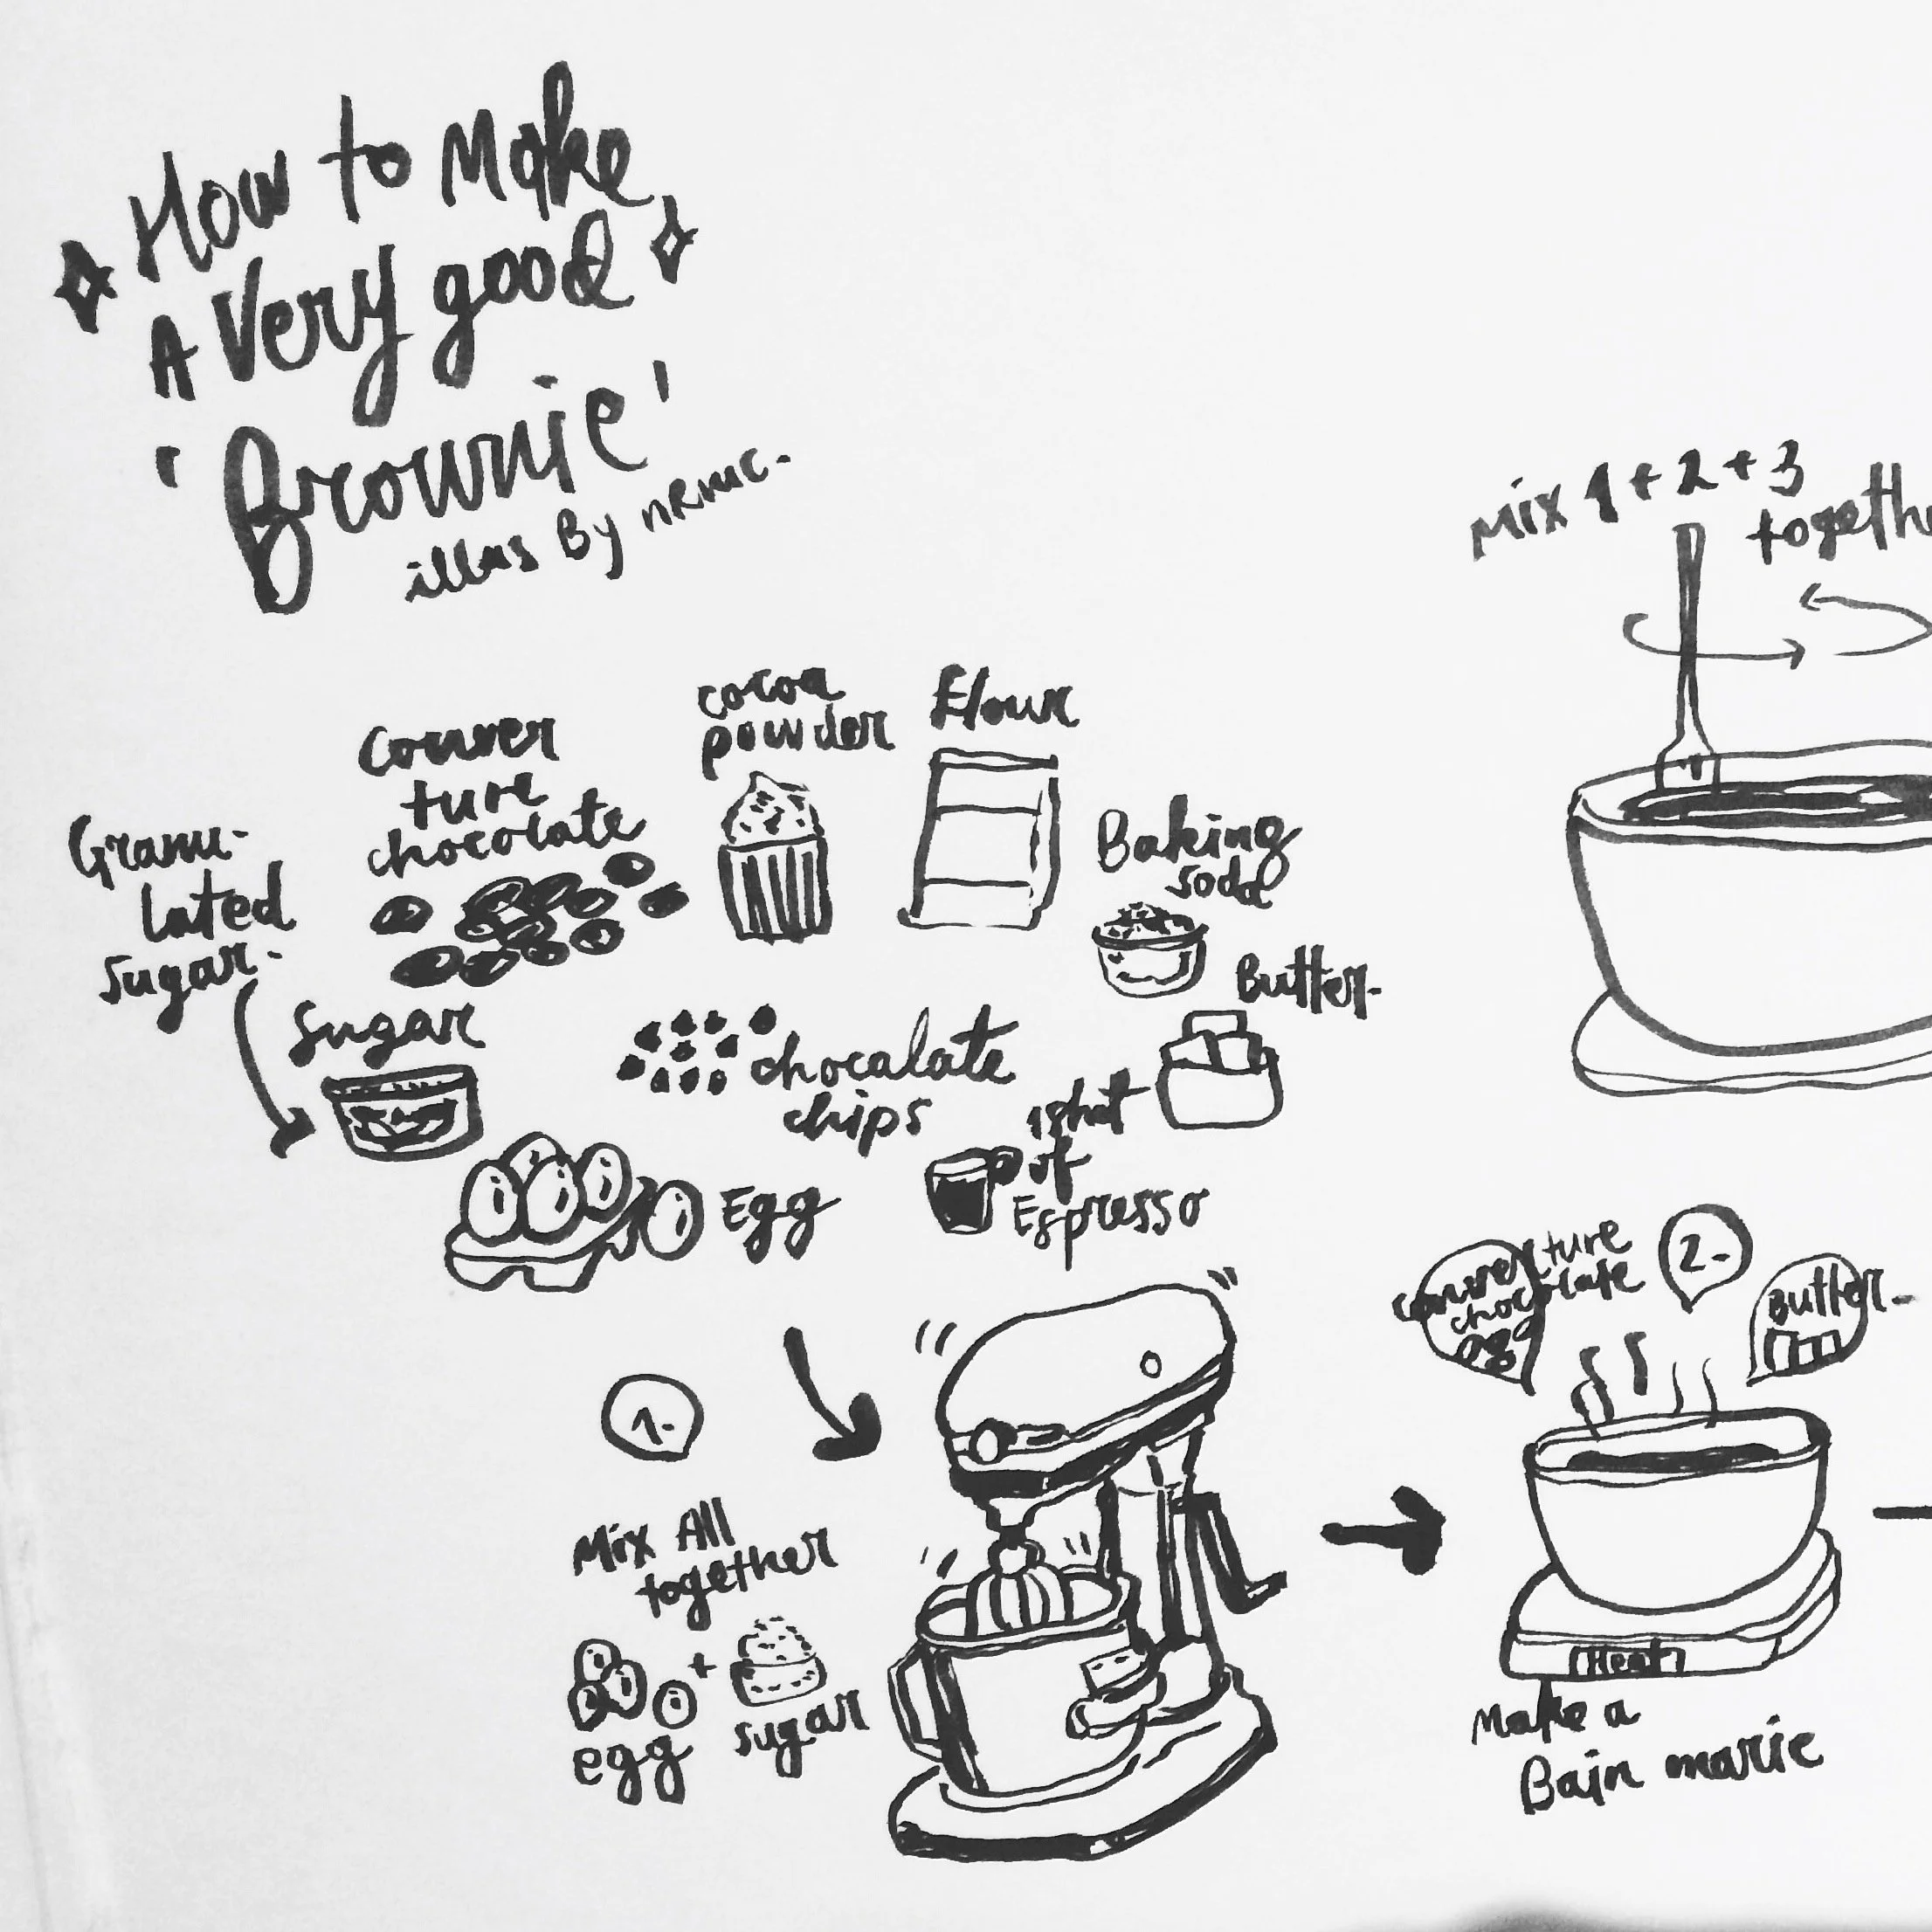 How to Make
A Very good
'Brownie'
illus By nRmic-
Mix 1 + 2 + 3
together
Conver
ture
chocolate
cocoa
powder
Flour
Granu-
lated
sugar-
Sugar
Baking
soda
Butter-
chocalate
chips
1 shot
of
Espresso
Egg
1-
Mix All
together
+
egg
sugar
2-
converture
chocolate
Butter-
Heat
Make a
Bain marie